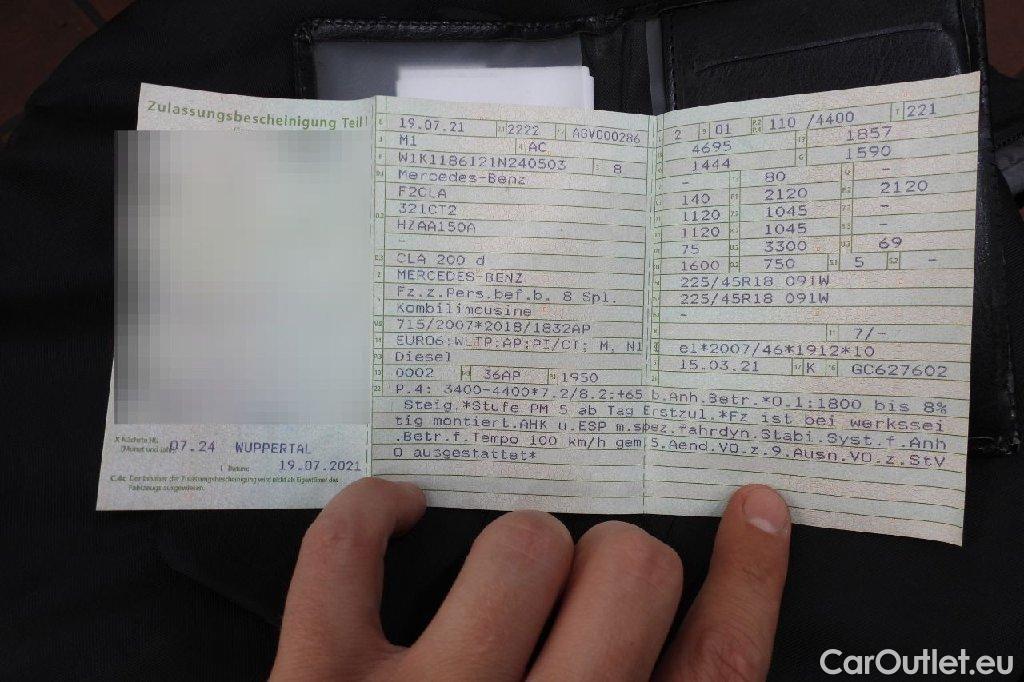 Zulassungsbescheinigung Teil I
X Nächste HU
(Monat und Jahr)
07.24 WUPPERTAL
I Datum
19.07.2021
C.4c Der Inhaber der Zulassungsbescheinigung wird nicht als Eigentümer des
Fahrzeugs ausgewiesen.
19.07.21 2222 ABV000286
M1 AC
W1K1186121N240503 8
Mercedes-Benz
F2CLA
321CT2
HZAA150A
-
CLA 200 d
MERCEDES-BENZ
Fz.z.Pers.bef.b. 8 Spl.
Kombilimousine
715/2007*2018/1832AP
EURO6;WLTP;AP;PI/CI; M, N1
Diesel
0002 36AP 1950
2 01 110 /4400 221
4695 1857
1444 1590
- 80 -
140 2120 2120
1120 1045 -
1120 1045 -
75 3300 69
1600 750 5 -
225/45R18 091W
225/45R18 091W
-
7/-
e1*2007/46*1912*10
15.03.21 K GC627602
P.4: 3400-4400*7.2/8.2:+65 b.Anh.Betr.*O.1:1800 bis 8%
Steig.*Stufe PM 5 ab Tag Erstzul.*Fz ist bei werkssei
tig montiert.AHK u.ESP m.spez.fahrdyn.Stabi.Syst.f.Anh
.Betr.f.Tempo 100 km/h gem.5.Aend.VO.z.9.Ausn.VO.z.StV
O ausgestattet*
CarOutlet.eu